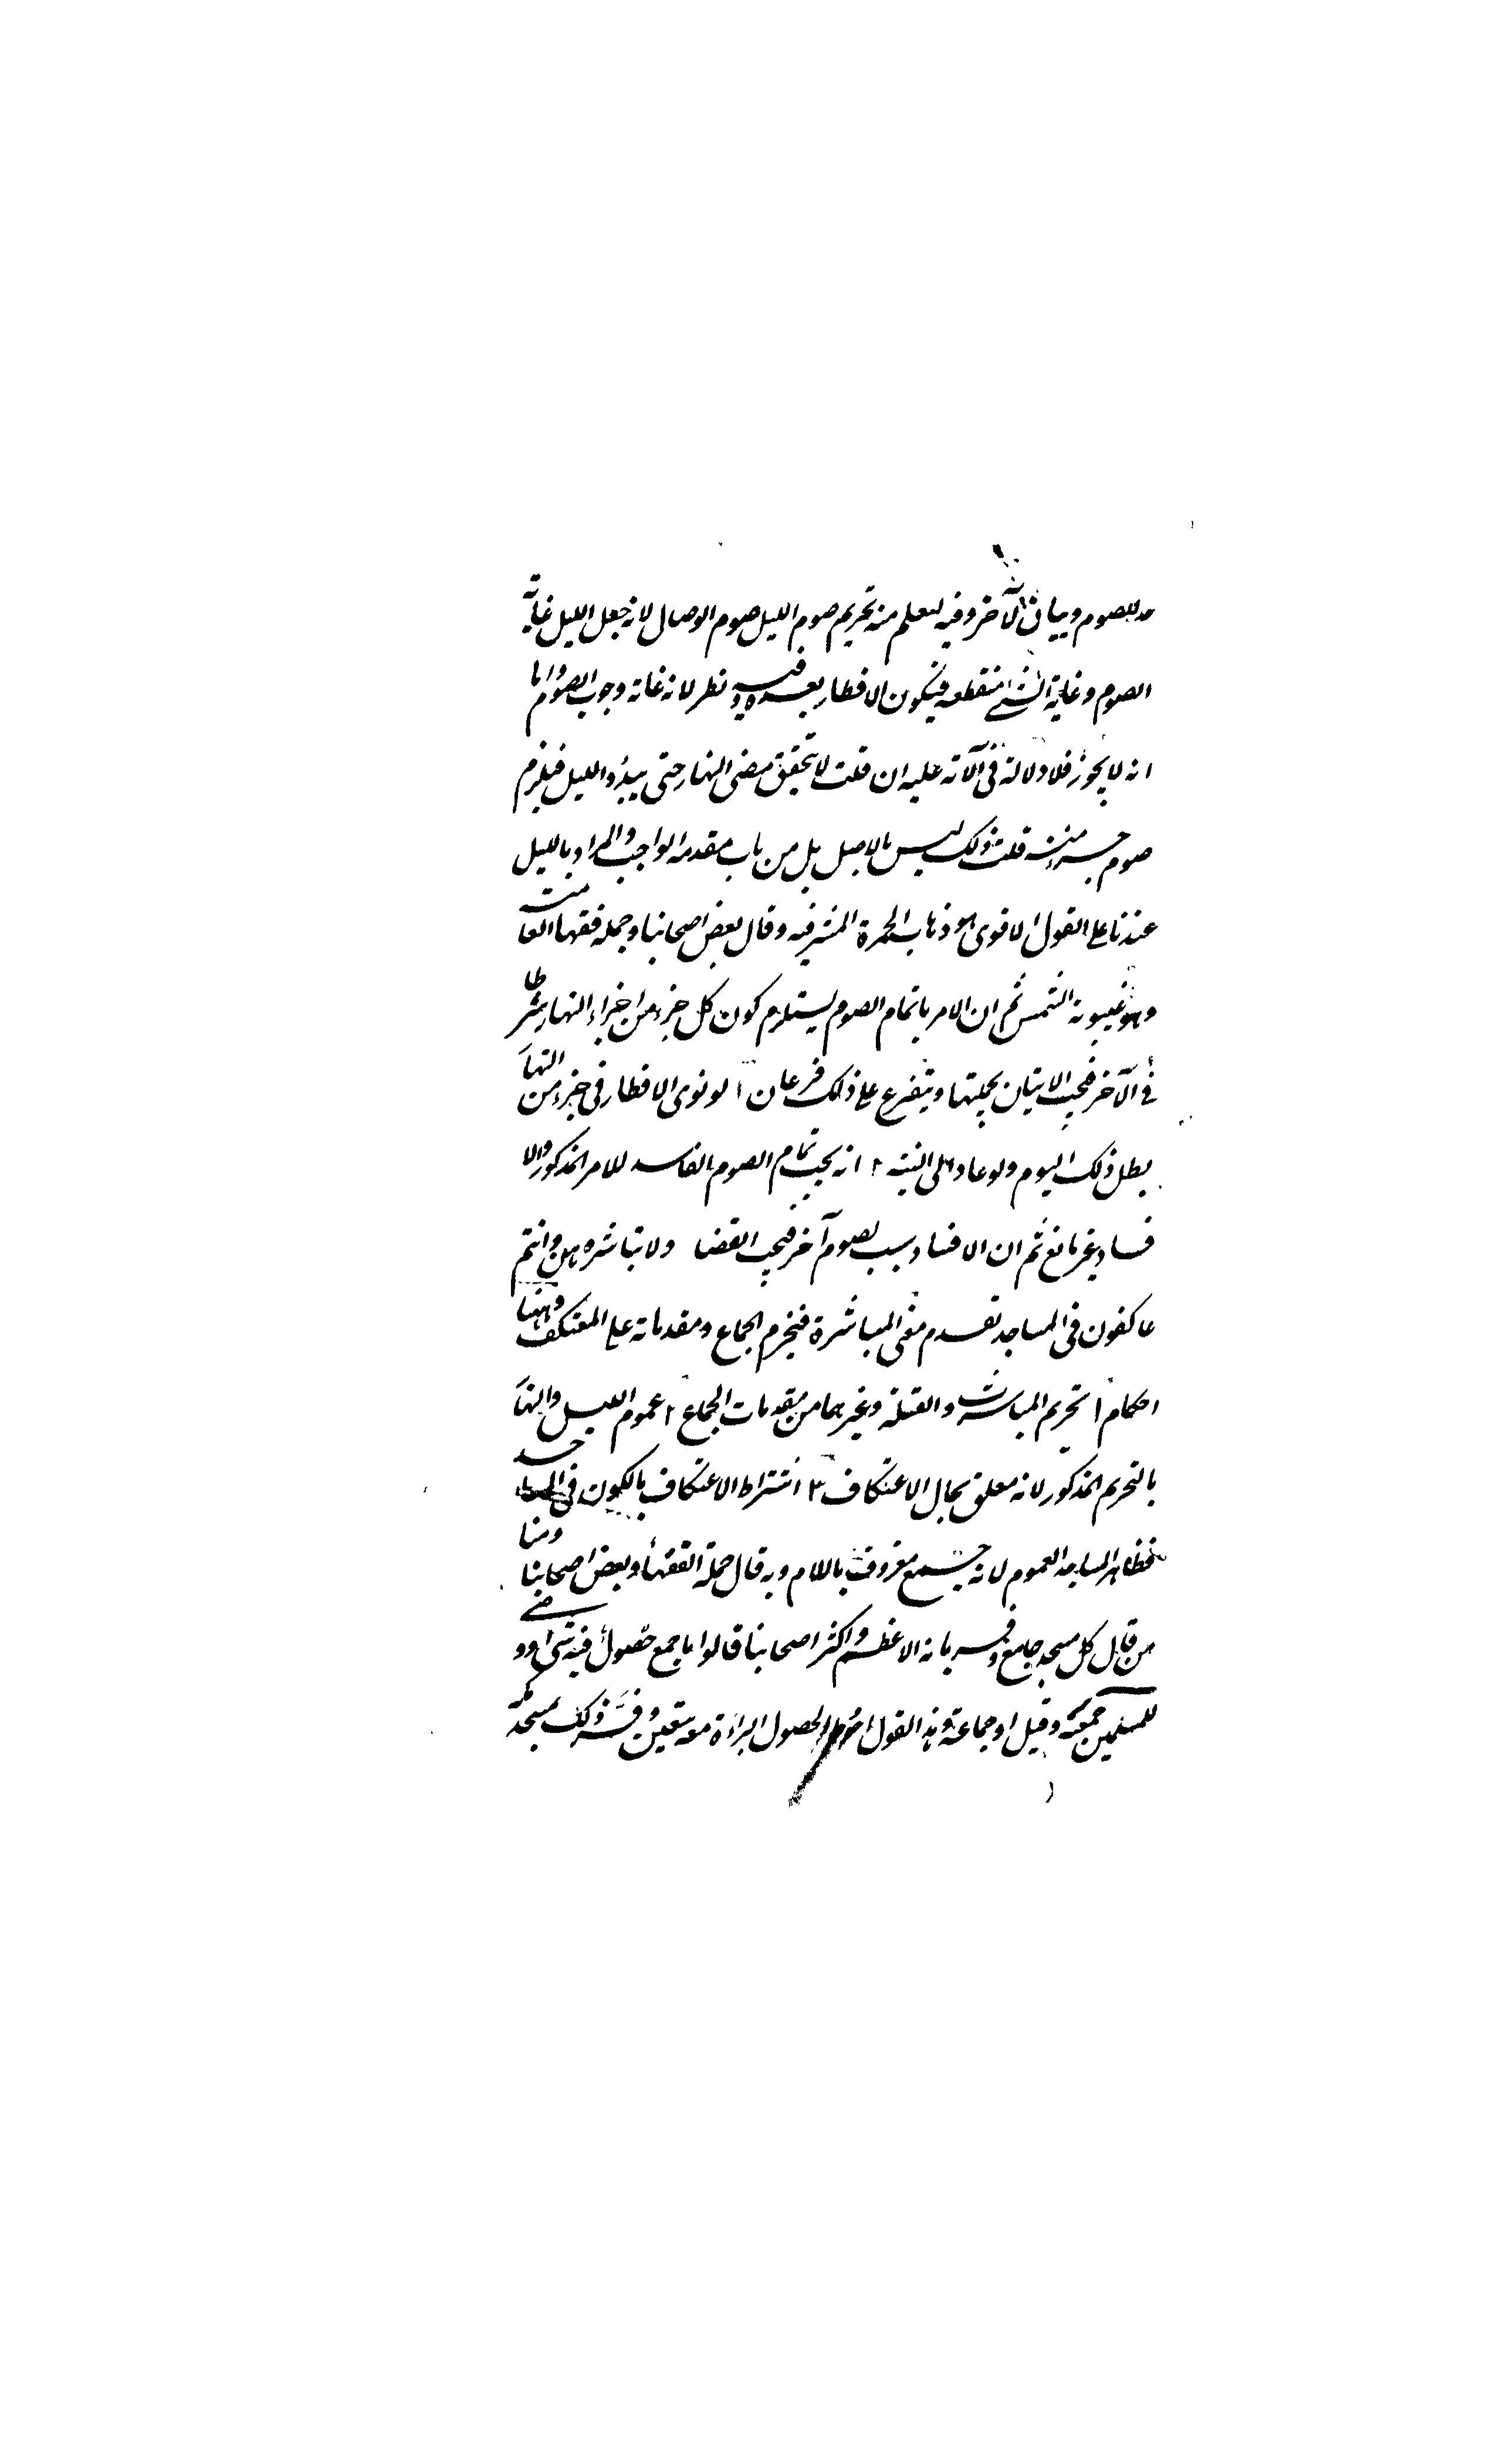 حد للصوم وبيان لآخر وقيه ليعلم منه تحريم صوم الليل صوم الوصال لانه جعل الليل غاية
الصوم وغاية الشئ منقطعه فيكون الافطار بعده وفيه نظر لانه غاية وجوب الصوم واما
انه لا يجوز فلا دلالة في الآية عليه ان قلت لا يتحقق مضى النهار حتى يبدو الليل فيلزم
صوم جزء منه قلت ذلك ليس بالاصل بل من باب مقدمة الواجب والمراد بالليل
عندنا على القول الاقوى هو ذهاب الحمرة المشرقيه وقال بعض اصحابنا وجملة فقهاء العامة
وهو غيبوبة الشمس ثم ان الامر باتمام الصوم يستلزم كون كل جزء من اجزاء النهار شرطا
في الآخر فيجب الاتيان بجملتها ويتفرع على ذلك فرعان ١ لو نوى الافطار في جزء من النها
بطل ذلك اليوم ولو عاد الى النية ٢ انه يجب تمام الصوم الفاسد للامر المذكور والا
فساد غير مانع ثم ان الافساد سبب لصوم آخر فيجب القضا ولا تباشروهن وانتم
عاكفون في المساجد تقدم معنى المباشرة فيحرم الجماع ومقدماته على المعتكف وههنا
احكام ١ تحريم المباشرة والقبلة وغيرهما من مقدمات الجماع ٢ عموم الليل والنها
بالتحريم المذكور لانه معلق بحال الاعتكاف ٣ اشتراط الاعتكاف بالكون في المساجد
فظاهر المساجد العموم لانه جمع معروف باللام وبه قال جملة الفقهاء وبعض اصحابنا ومنا
من قال كل مسجد جامع وفسر بانه الاعظم واكثر اصحابنا قالوا ما جمع فيه نبى او وصى
للمسلمين جمعة وقيل او جماعة وهذا القول احوط لحصول البراءة معه بيقين وفسر ذلك بمسجد مكة